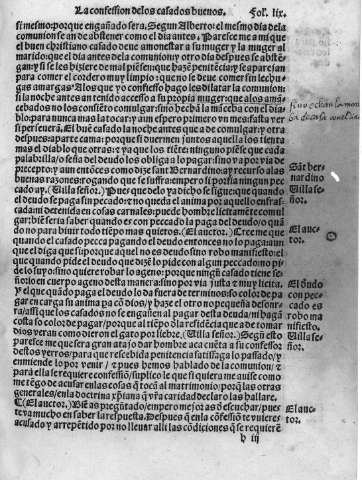 La confession de los casados buenos. Fol. lix.
si mesmo: porque engañado sera. Segun Alberto: el mesmo dia dela
comunion se an de abstener como el dia antes. Paresce me a mi que
el buen christiano casado deue amonestar a su muger y la muger al
marido: que el dia antes dela comunion / y otro dia despues se abstẽ-
gan: y si se les hiziere de mal piẽsen que hazẽ penitẽcia: y se aparejan
para comer el cordero muy limpio: que no se deue comer sin lechu-
gas amargas. A los que yo confiesso hago les dilatar la comunion
si la noche antes an tenido accesso a su propia muger: que a los amã-
cebados no los cõsiẽto comulgar sino hechã la mãceba con el dia-
blo: para nunca mas la tocar: y aun espero primero vn mes: fasta ver
si perseuera. El buẽ casado la noche antes que a de comulgar: y otra
despues: aparte cama: porque si duermen juntos aquella los tienta
mas el diablo que otras: y a que los tiẽte: ninguno piẽse que cada
palabrilla / o seña del deudo los obliga a lo pagar: sino va por via de
precepto: y aun entonces como dize sant Bernardino: ay recurso a las
buenas razones: rogando que se suffra: empero si porfia ningun pe-
cado ay. (Uilla señor.) Pues que deso ya dicho se sigue: que quando
el deudo se paga sin pecado: no queda el anima por aquello enfras-
cada: ni detenida en cosas carnales: puede hombre licitamẽte comul-
gar: biẽ seria saber quando es con peccado la paga del deudo / o quã-
do no para biuir todo tiẽpo mas quietos. (El auctor.) Cree me que
quando el casado pecca pagando el deudo entonces no lo paga: aun
que el diga que si: porque aquel no es deudo sino robo manifiesto: el
que quando pide el deudo que dizẽ lo pide con algun peccado no pi-
de lo suyo: sino quiere robar lo ageno: porque ningũ casado tiene se-
ñorio en cuerpo ageno desta manera: sino por via justa z muy licita.
Y el que quãdo paga el deudo lo da fuera de termino: so color de pa-
gar en carga su anima pa cõ dios / y haze el otro no pequeña desonr-
ra / assi que los casados no se engañen al pagar desta deuda / ni hagã
costa so color de pagar / porque al tiẽpo dla residẽcia que a de tomar
dios veran como dieron el gato por liebre. (Uilla señor.) Segũ esto
paresce me que sera gran tara jo dar hombre aca cuẽta a su confessor
destos yerros: para que rescebida penitencia satisfaga lo passado / y
enmiende lo por venir / z pues hemos hablado de la comunion / z
para ella se requiere confessiõ / suplico le que si quiera me auise como
me tẽgo de acusar en las cosas q̃ tocã al matrimonio / porq̃ las otras
generales / en la doctrina xp̃iana q̃ vr̃a caridad declaro las hallare.
(El auctor.) Biẽ as pregũtado / empero mejor as d̃ escuchar / pues
te va mucho en saber la respuesta. Despues q̃ en la cõfessiõ te vuieres
acusado y arrepẽtido por no lleuar alli las cõdiciones q̃ se requierẽ
h iij
Sãt ber-
nardino
Uilla se-
ñor.
El auc-
tor.
El õudo
con pec-
cado es
robo ma
nifiesto.
Uilla se-
ñor.
El auc-
tor.